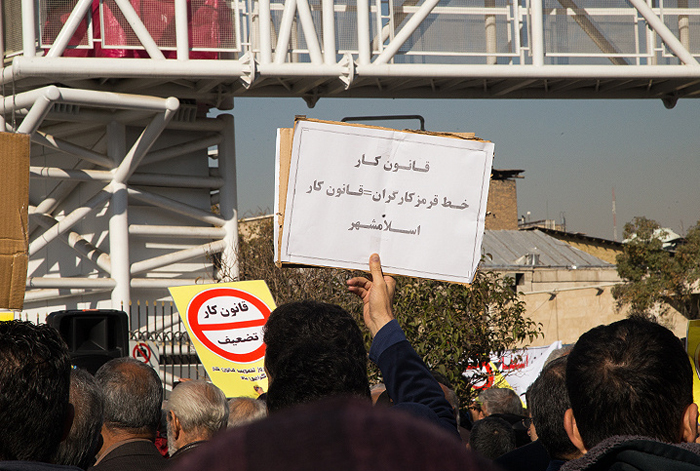 قانون کار
خط قرمز کارگران=قانون کار
اسلامشهر
قانون کار
تضعیف